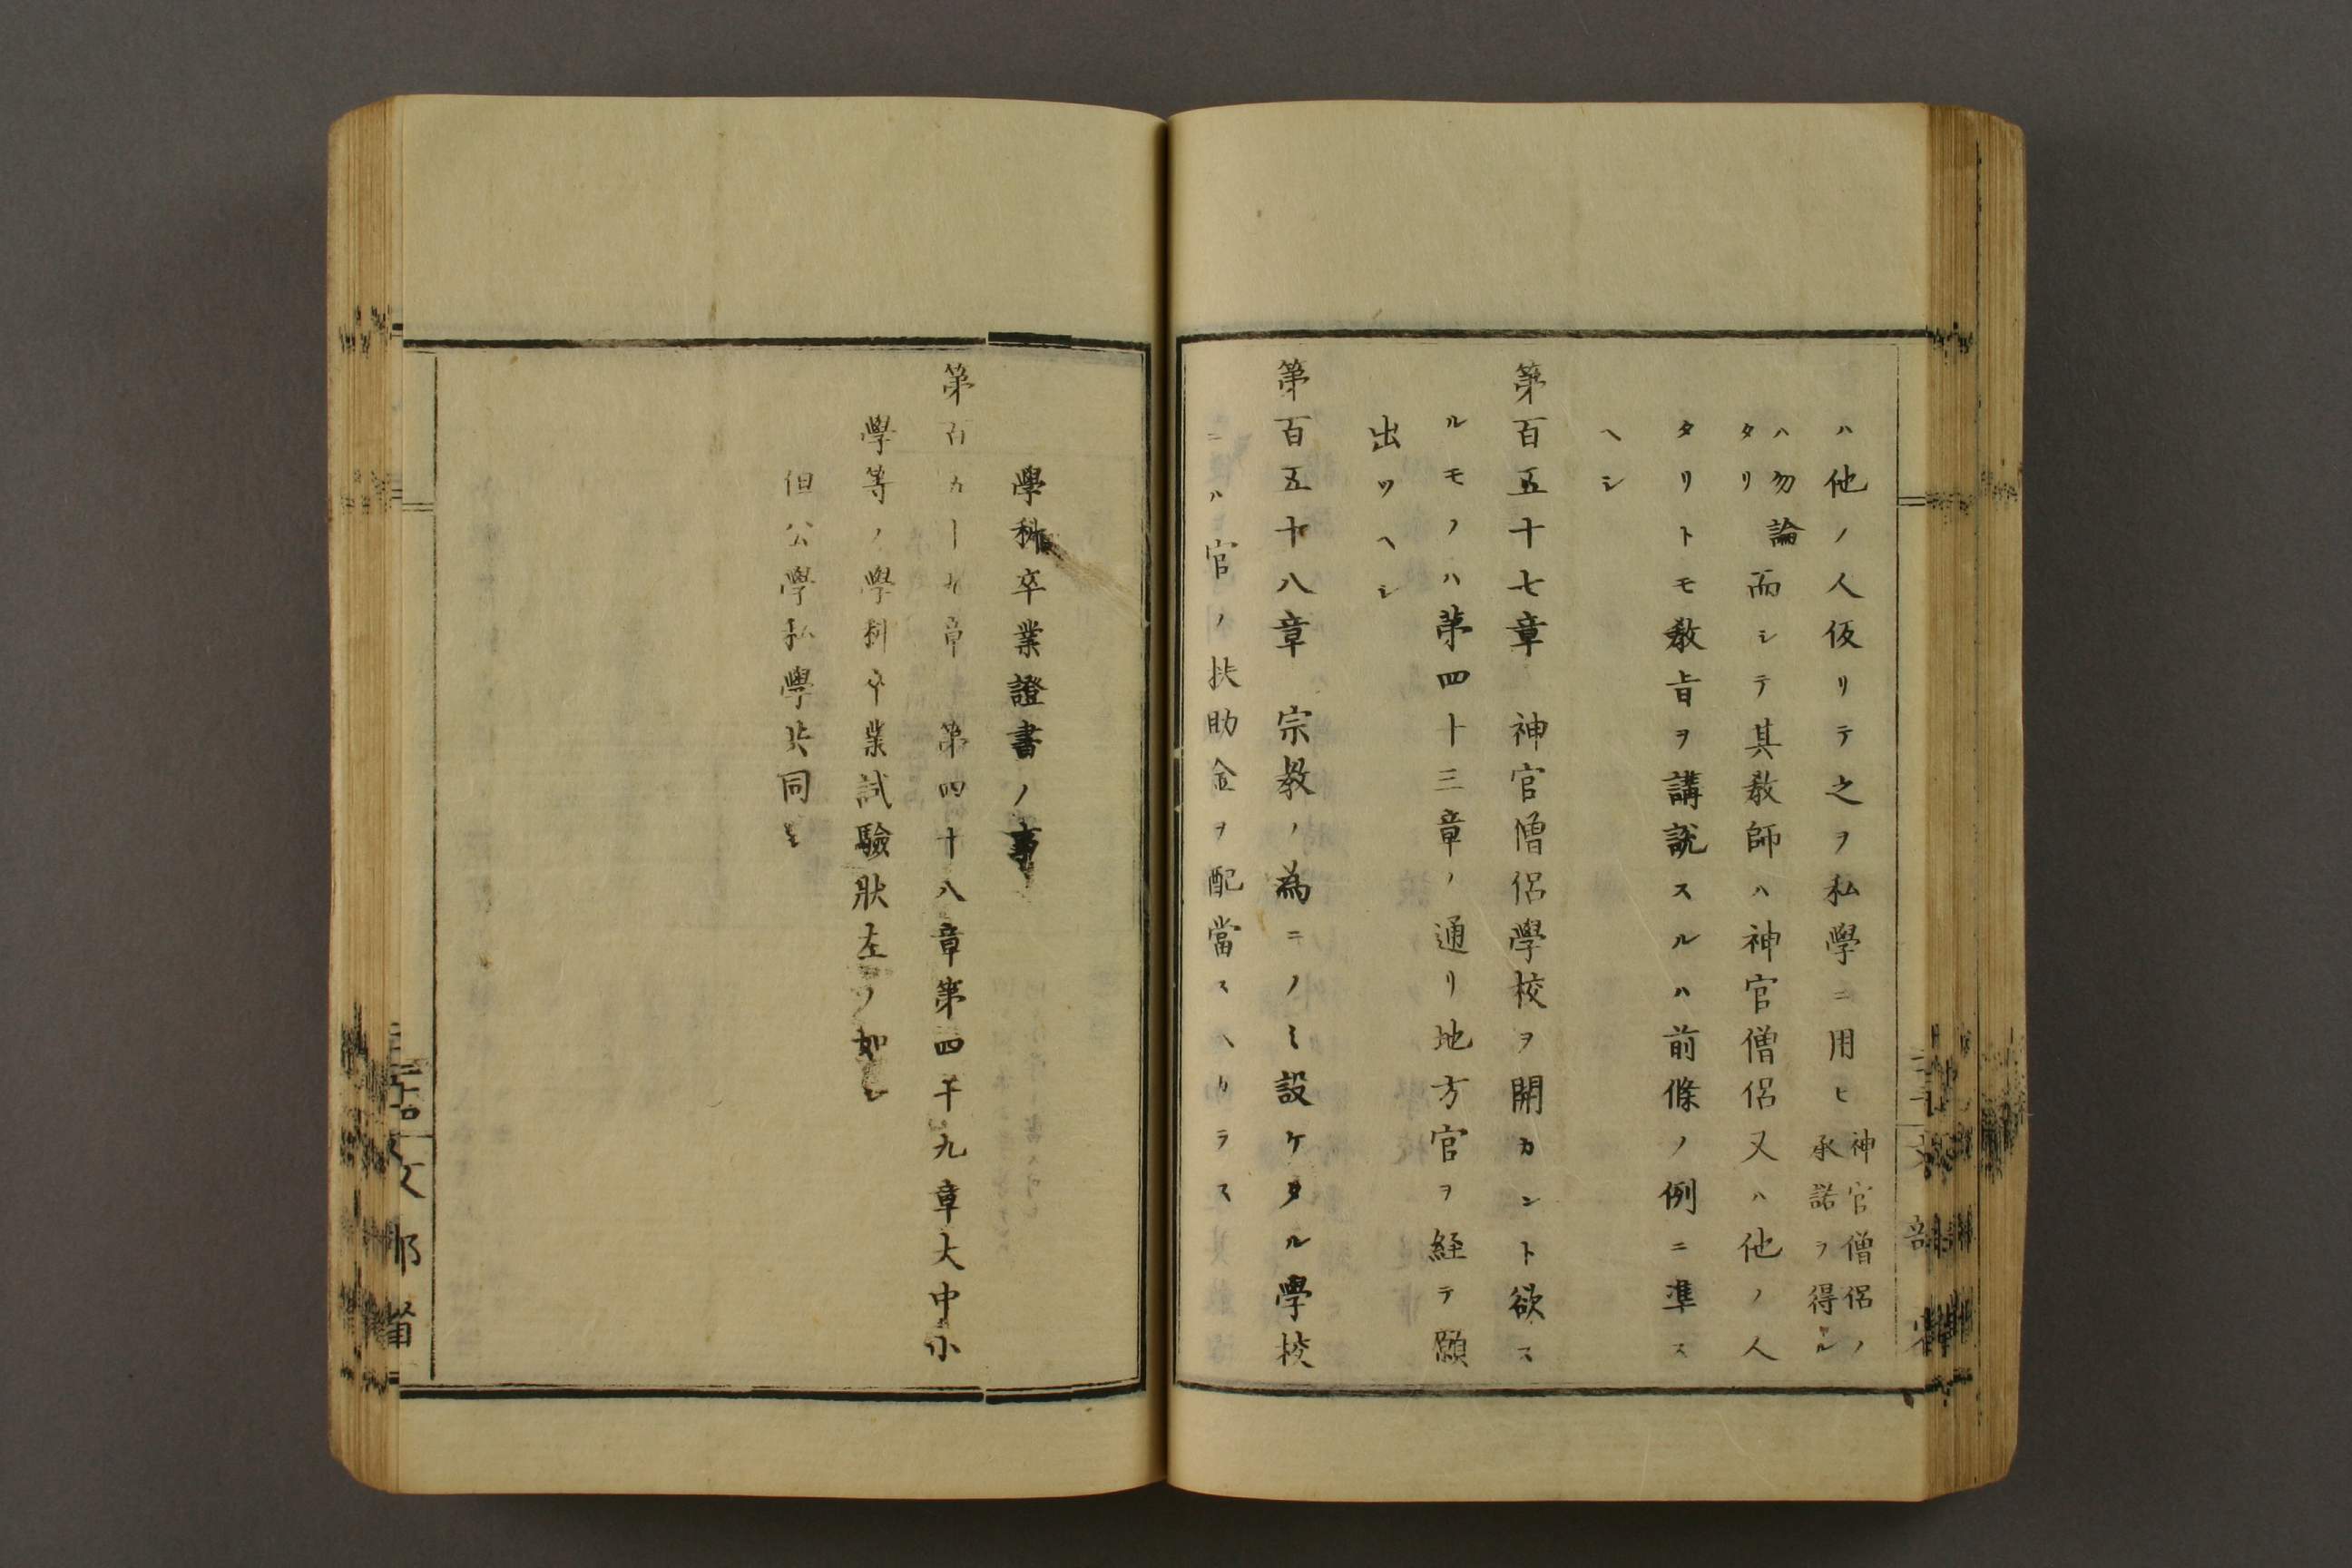 ハ他ノ人仮リテ之ヲ私學ニ用ヒ神官僧侶ノ承諾ヲ得ル
ハ勿論タリ而シテ其教師ハ神官僧侶又ハ他ノ人
タリトモ教旨ヲ講説スルハ前條ノ例ニ準ス
ヘシ
第百五十七章 神官僧侶學校ヲ開カント欲ス
ルモノハ第四十三章ノ通リ地方官ヲ経テ願
出ツヘシ
第百五十八章 宗教ノ為ニノミ設ケタル學校
ニハ官ノ扶助金ヲ配當スヘカラス
學科卒業證書ノ事
第百五十九章 第四十八章第四十九章大中小
學等ノ學科卒業試驗狀左ノ如シ
但公學私學共同シ
文部省